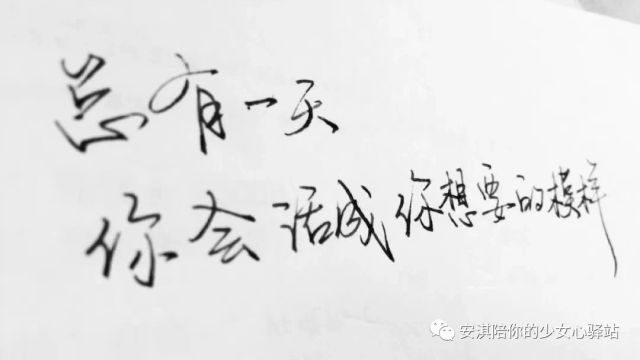 总有一天
你会活成你想要的模样
安淇陪你的少女心驿站